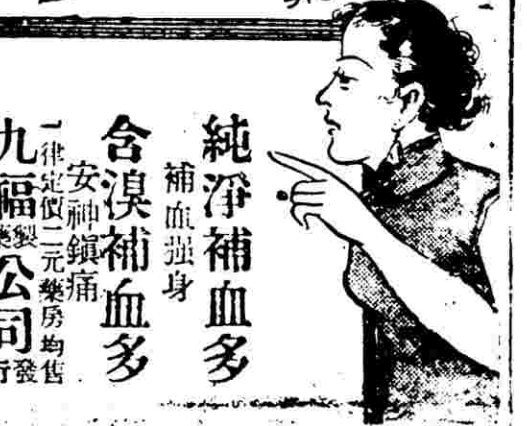 純淨補血多
補血强身
含溴補血多
安神鎮痛
一律定價二元藥房均售
九福製藥公司發行